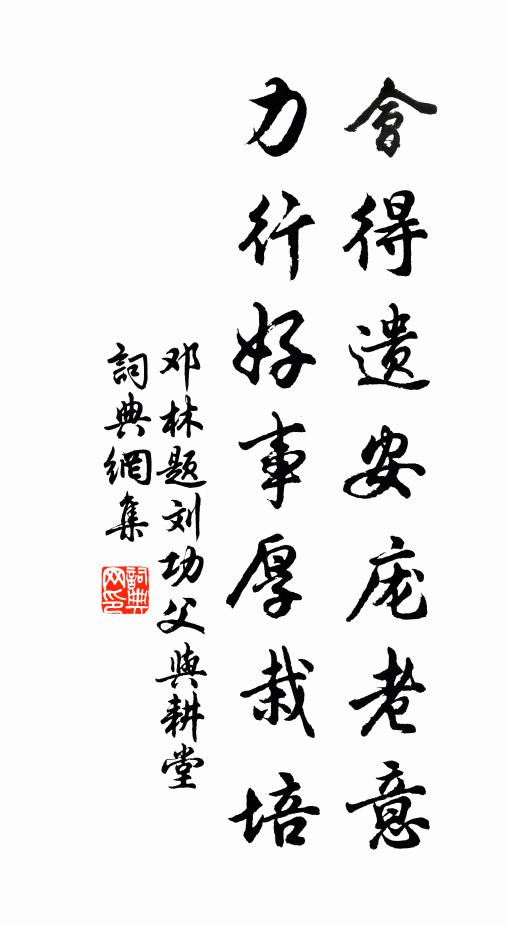 會得遗安庞老意
力行好事厚栽培
邓林题刘功父與耕堂
詞典網集
詞典
网印